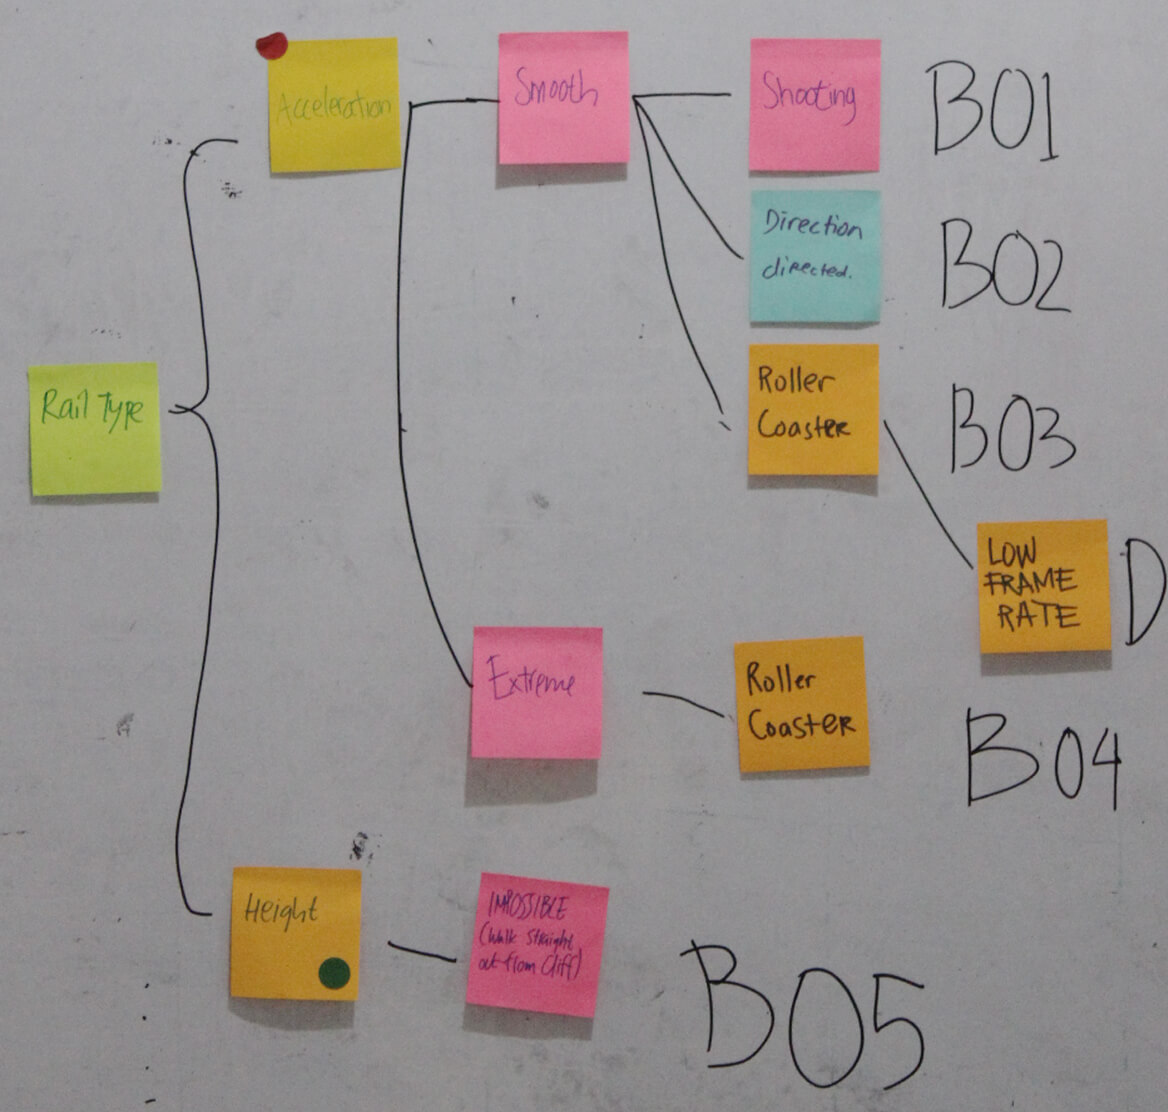 Acceleration
Smooth
Shooting
B01
Direction
directed.
B02
Rail Type
Roller
Coaster
B03
LOW
FRAME
RATE
D
Extreme
Roller
Coaster
B04
Height
IMPOSSIBLE
(Walk straight
out from Cliff)
B05